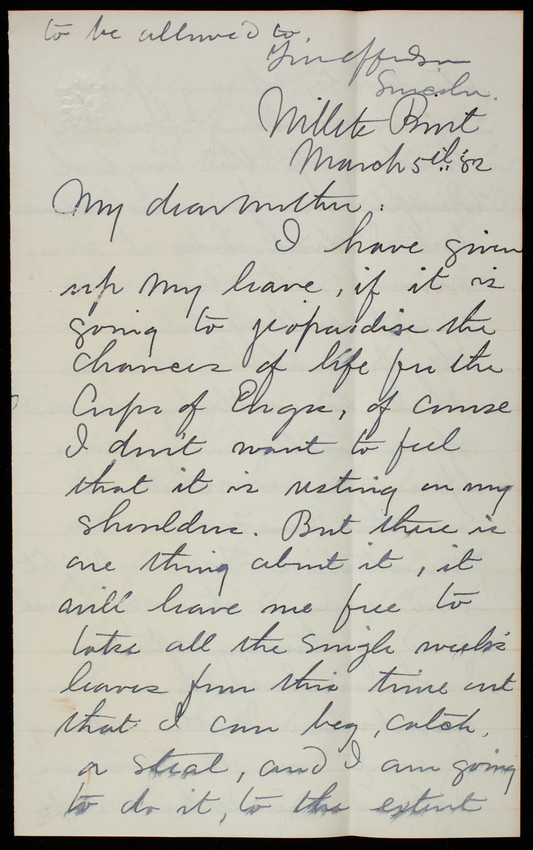 to be allowed to.
Your affec son
Lincoln.
Willets Point
March 5th '82
My dear mother:
I have given
up my leave, if it is
going to jeopardise the
chances of life for the
Corps of Engrs, of course
I don't want to feel
that it is resting on my
shoulders. But there is
one thing about it, it
will leave me free to
take all the single weeks
leaves from this time out
that I can beg, catch,
or steal, and I am going
to do it, to the extent